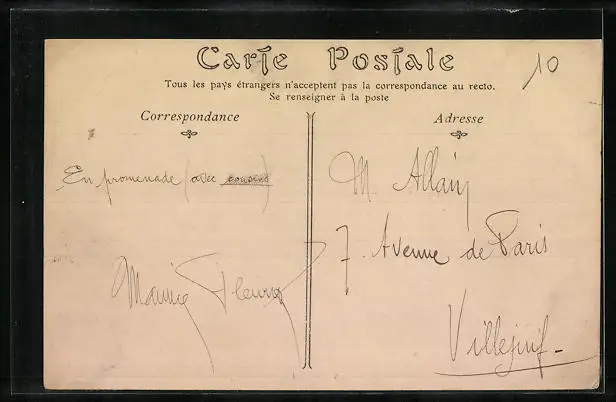 10
Carte Postale
Tous les pays étrangers n'acceptent pas la correspondance au recto.
Se renseigner à la poste
Correspondance
Adresse
En promenade (avec cousine)
Maurice Fleury
M. Allain
7. Avenue de Paris
Villejuif-